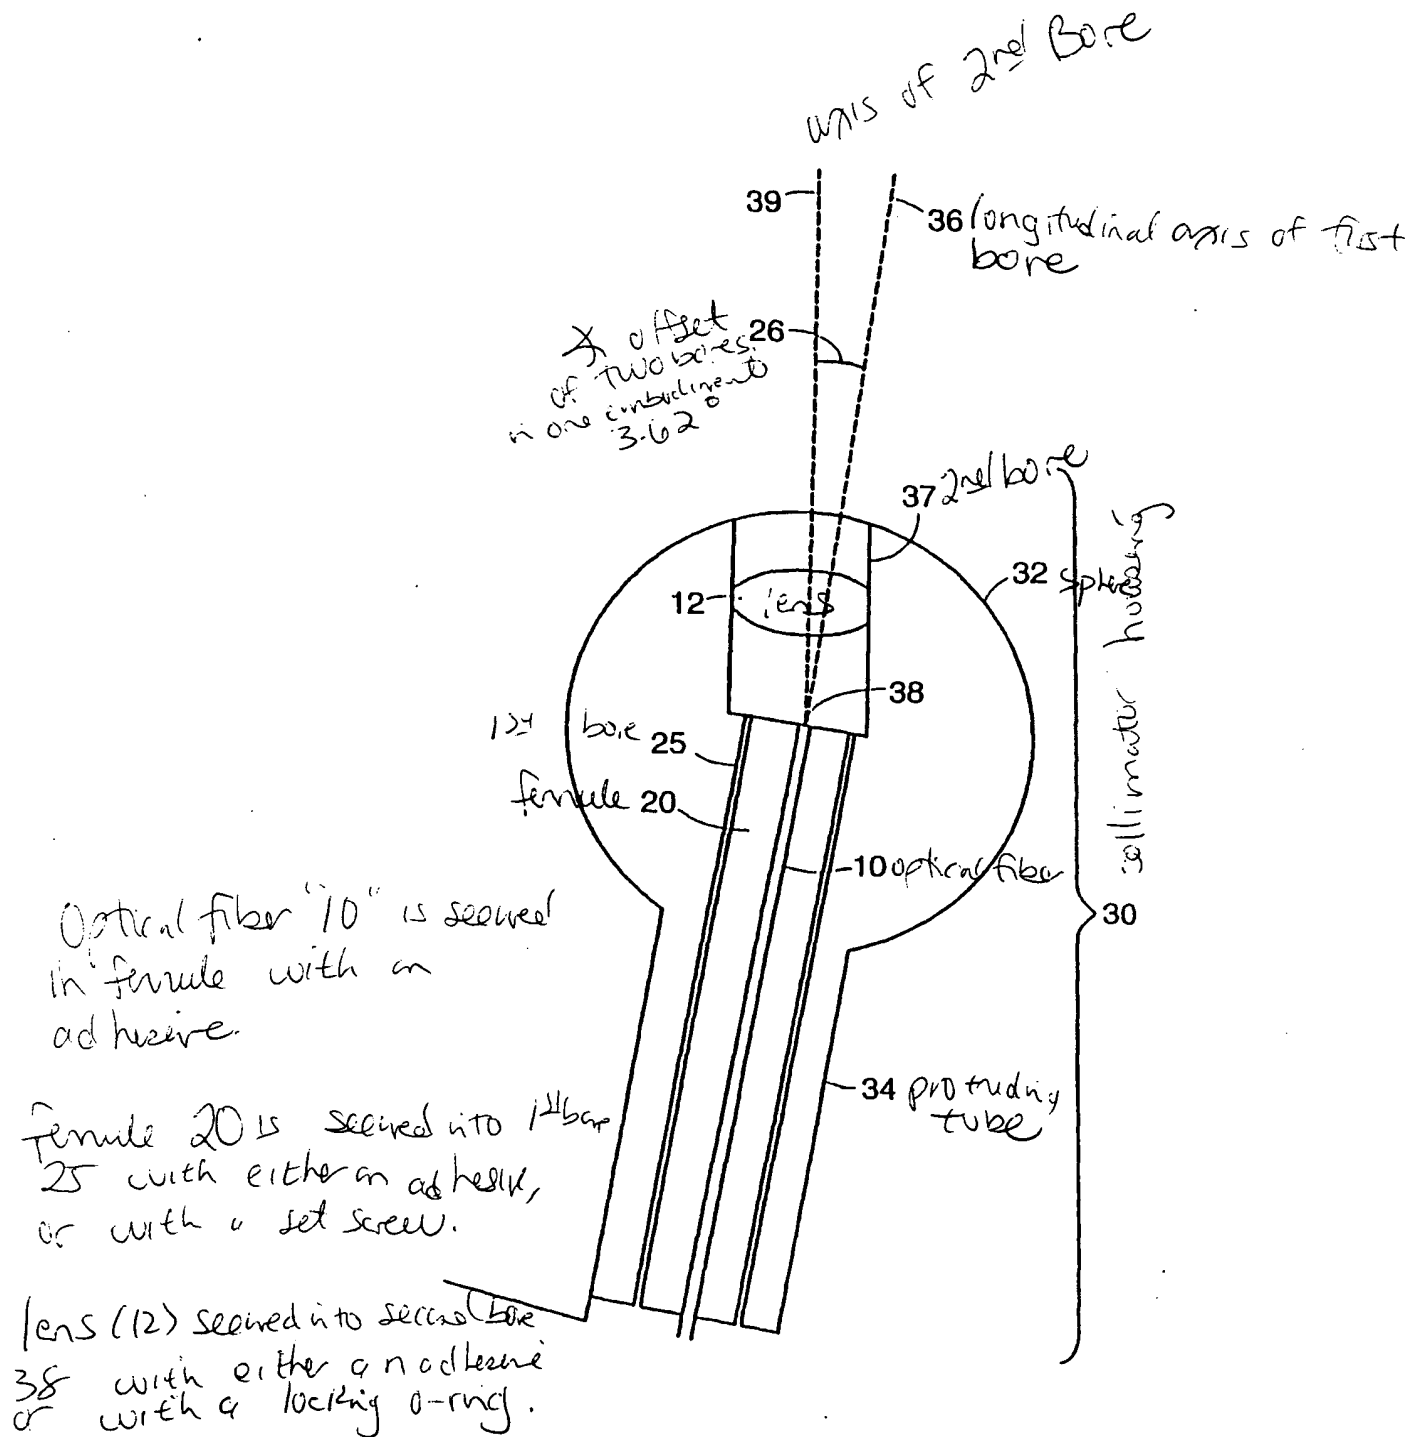 axis of 2nd Bore
39
36 longitudinal axis of first
bore
26
offset
of two bores
in one embodiment
3.62°
37 2nd bore
32 sphere
collimator housing
12 lens
38
1st bore 25
ferrule 20
10 optical fiber
30
Optical fiber "10" is secured
in ferrule with an
adhesive.
34 protruding
tube
Ferrule 20 is secured into 1st bore
25 with either an adhesive,
or with a set screw.
lens (12) secured into second bore
38 with either an adhesive
or with a locking o-ring.